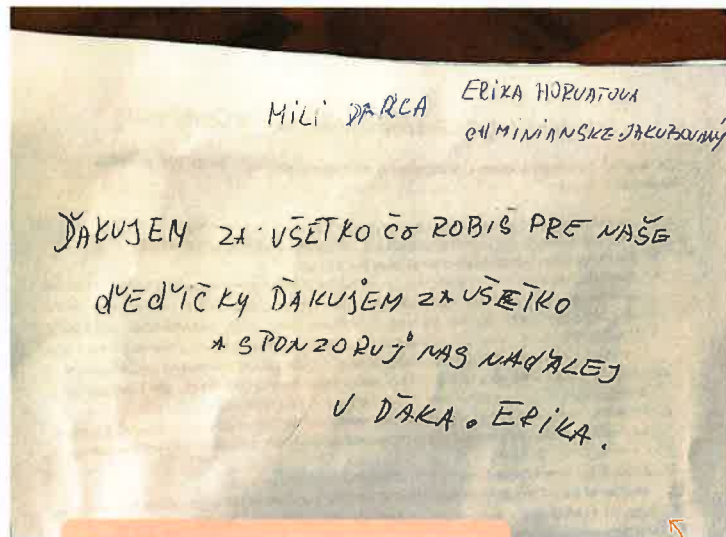 MILI DARCA
ERIKA HORVATOVA
CHMINIANSKE JAKUBOVANY
ĎAKUJEM ZA VŠETKO ČO ROBIŠ PRE NAŠE
ďEďIČKY ĎAKUJEM ZA VŠETKO
A SPONZORUJ NAS NAďALEJ
V ĎAKA. ERIKA.